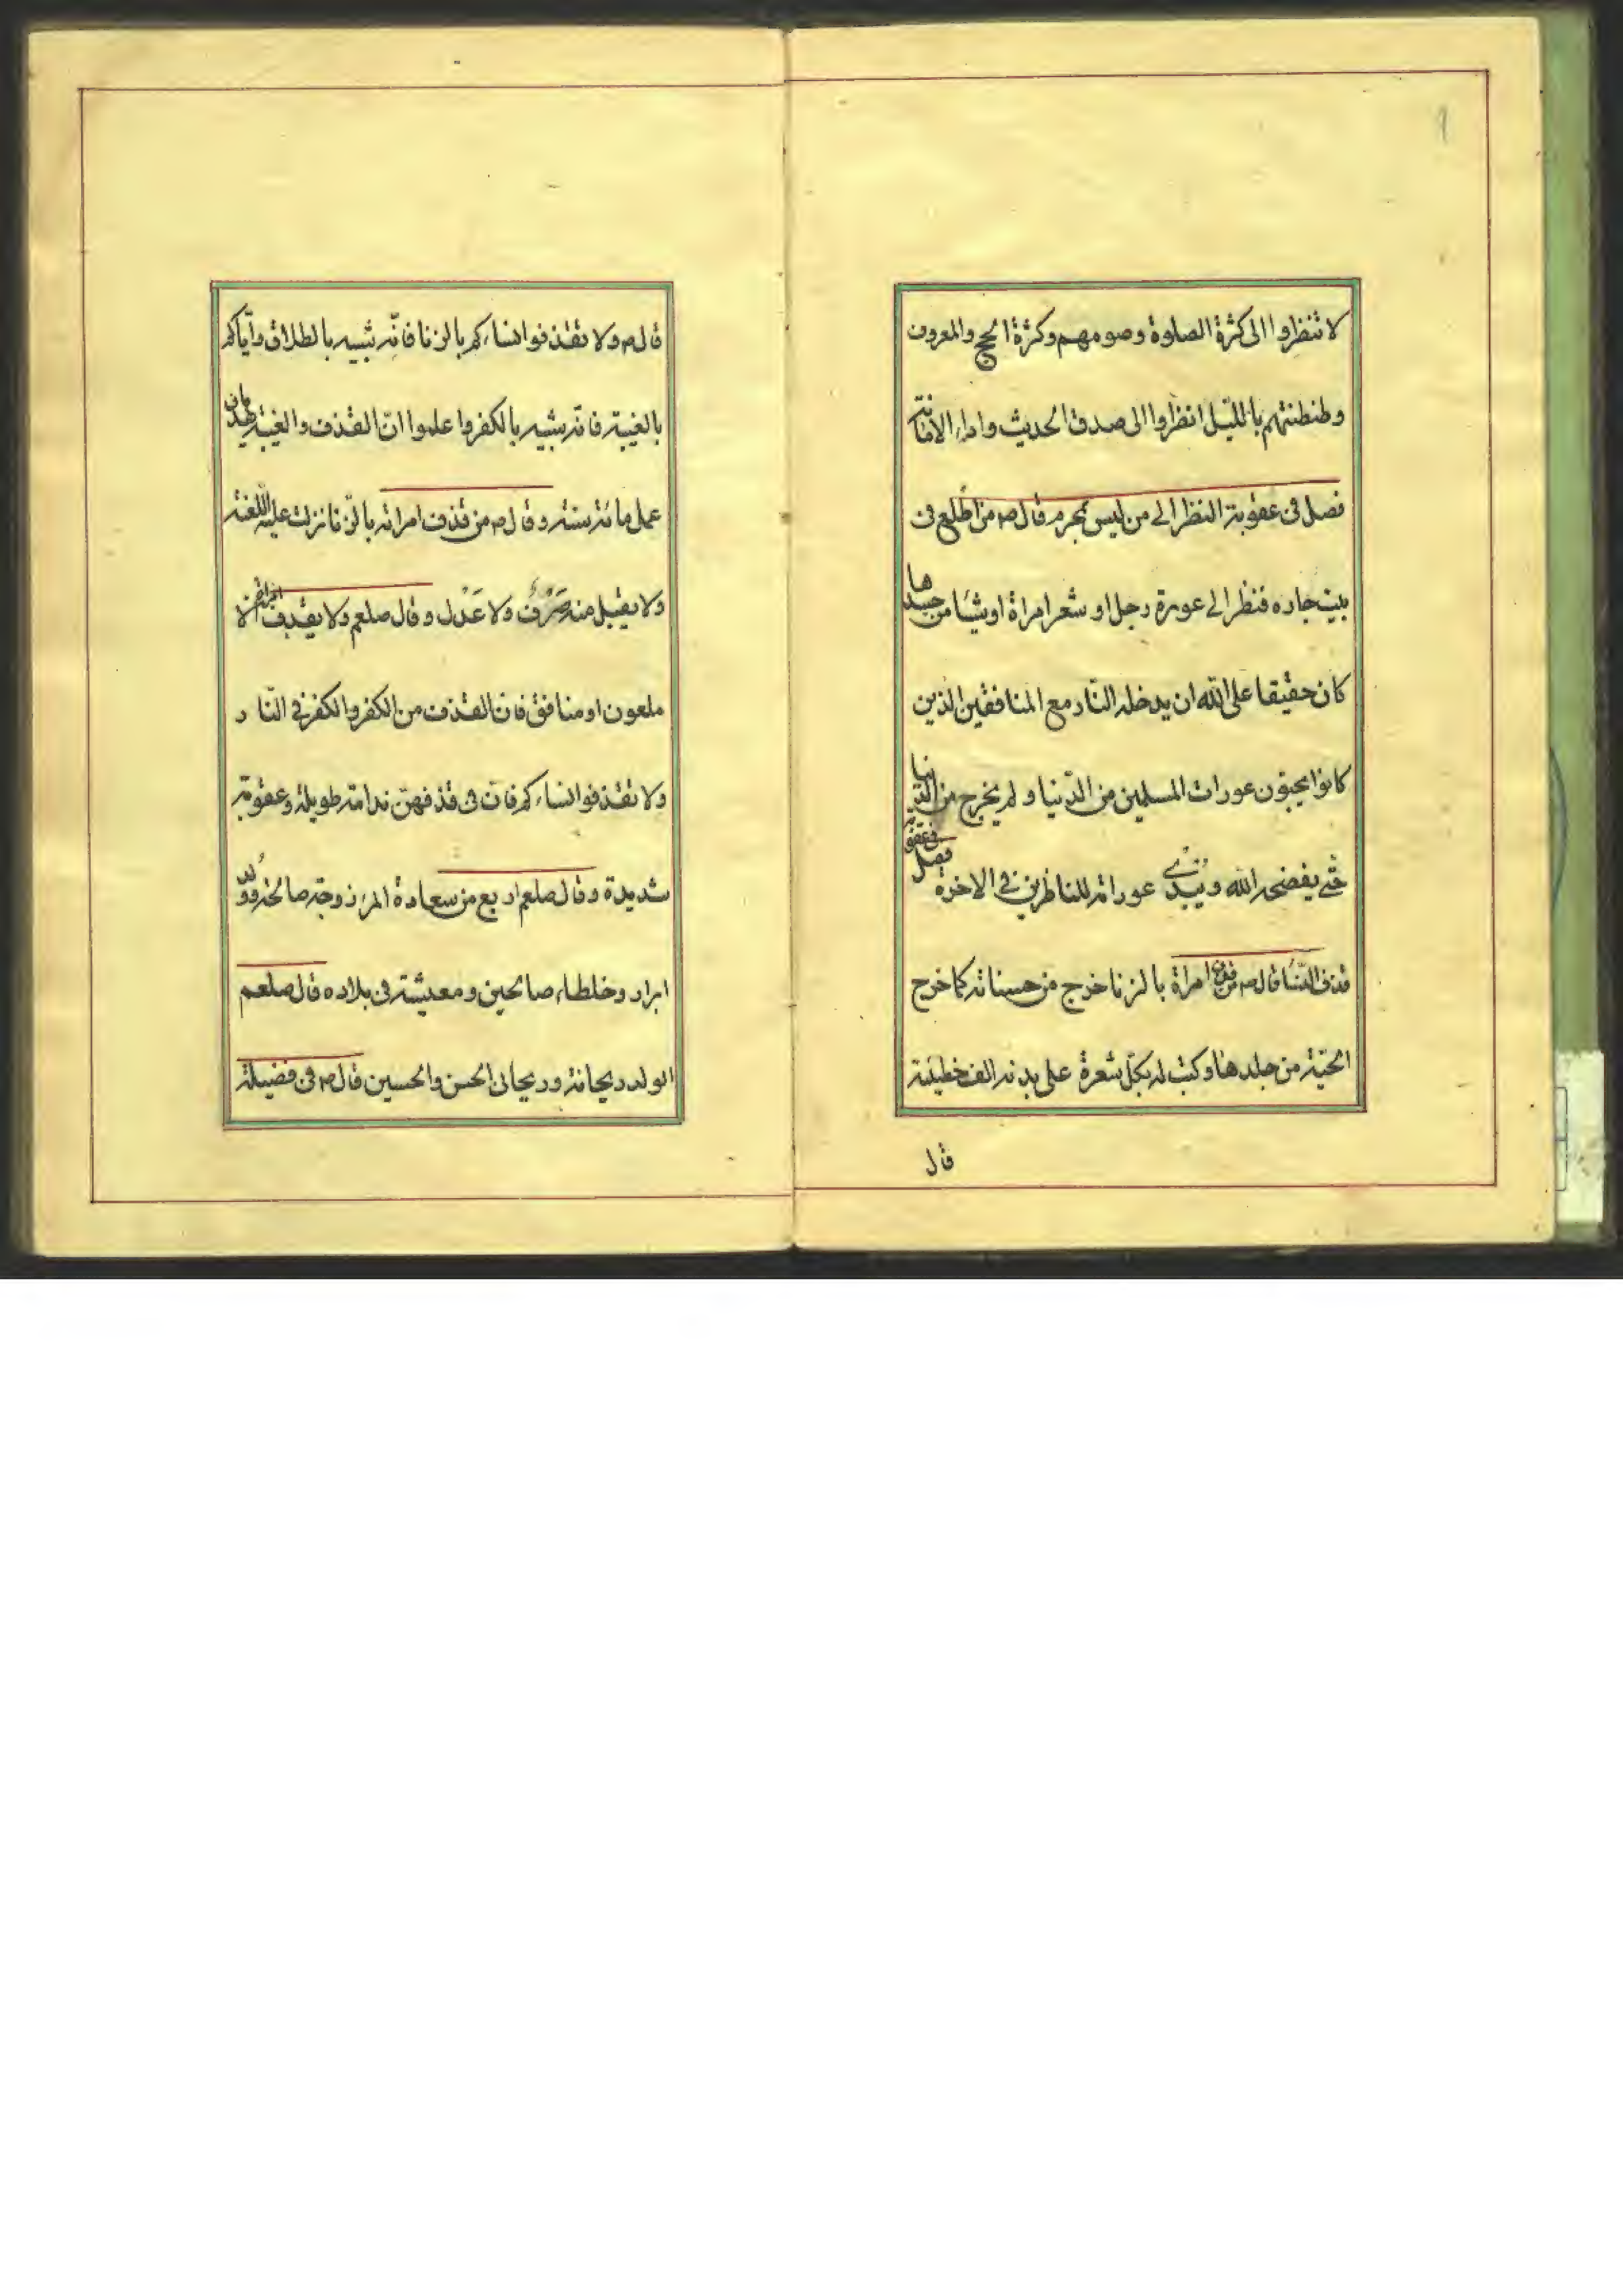 ٩
لا تنظروا الى كثرة الصلوة وصومهم وكثرة الحج والمعروف
وطنطنتهم بالليل انظروا الى صدق الحديث واداء الامانة
فصل فى عقوبة النظر الى من ليس بمحرم قال ص من اطلع فى
بيت جاره فنظر الى عورة رجل او شعر امراة او شيئا من جسدها
كان حقيقا على الله ان يدخله النار مع المنافقين الذين
كانوا يحبون عورات المسلمين من الدنيا ولم يخرج من الدنيا
حتى يفضحه الله ويبدى عوراته للناظرين فى الاخرة فصل فى عقوبة
قذف النسا قال ص من قذف امراة بالزنا خرج من حسناته كما خرج
الحية من جلدها وكتب له بكل شعرة على بدنه الف خطيئة
قال
قال ص ولا تقذفوا نساءكم بالزنا فانه شبيه بالطلاق واياكم
بالغيبة فانه شبيه بالكفر واعلموا ان القذف والغيبة يهدمان
عمل مائة سنة وقال ص من قذف امراته بالزنا نزلت عليه اللعنة
ولا يقبل منه صَرْفٌ ولا عَدْل وقال صلعم ولا يقذف امراته الا
ملعون او منافق فان القذف من الكفر والكفر فى النار
ولا تقذفوا نساءكم فان فى قذفهن ندامة طويلة وعقوبة
شديدة وقال صلعم اربع من سعادة المرء زوجة صالحة وولد
ابرار وخلطاء صالحين ومعيشته فى بلاده قال صلعم
الولد ريحانة وريحانى الحسن والحسين قال ص فى فضيلة